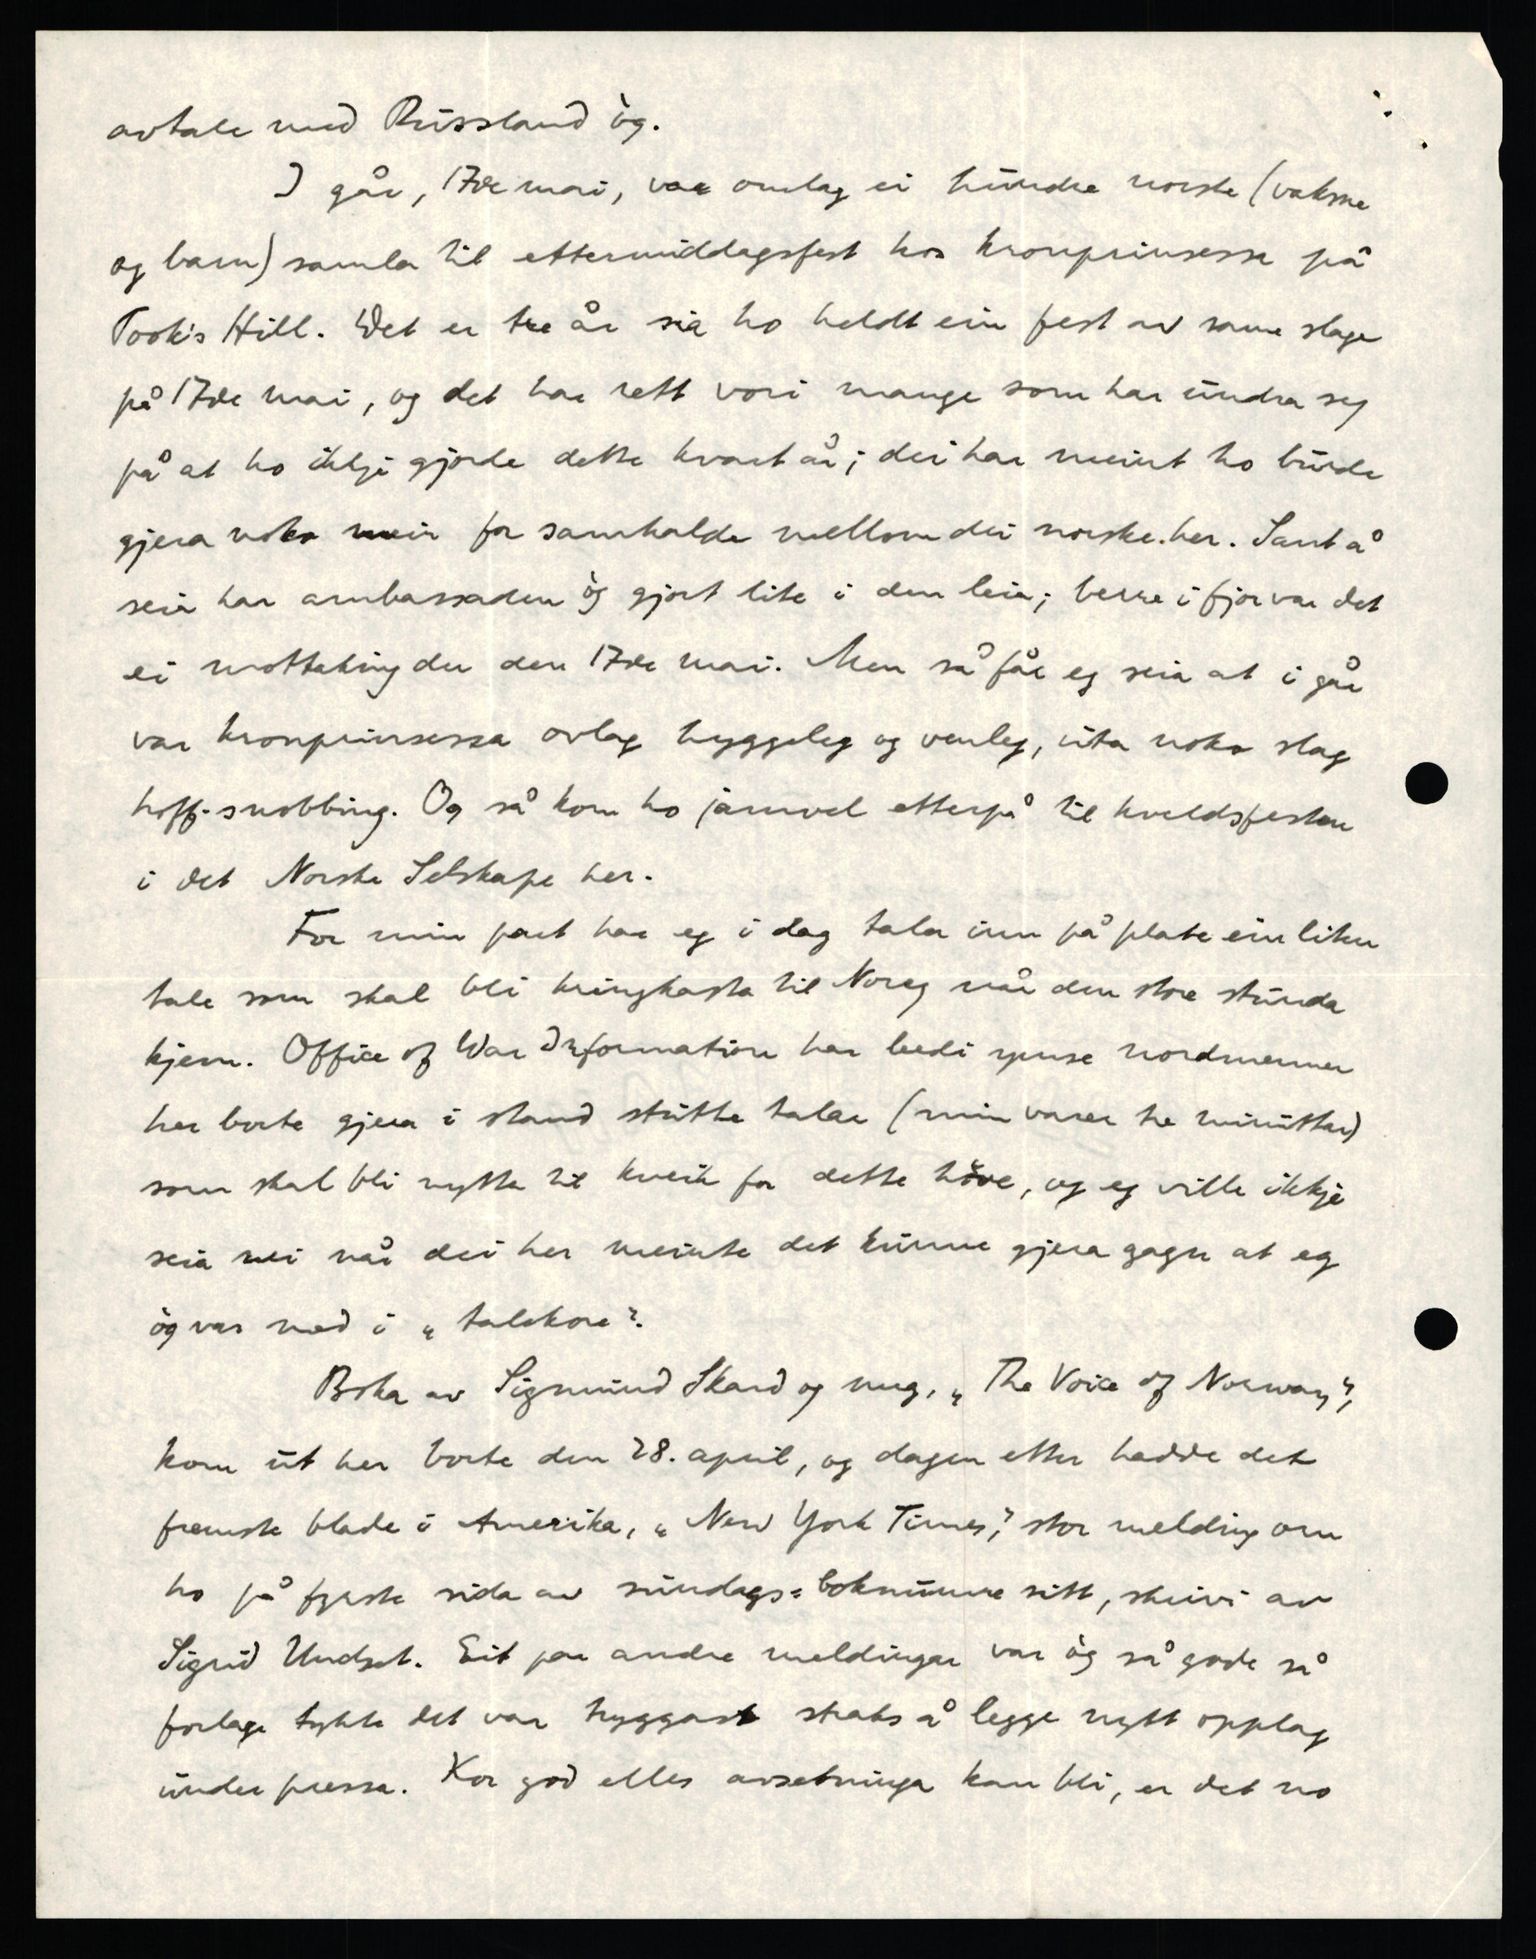 avtale med Russland òg.
I går, 17de mai, var omlag ei hundre norske (vaksne
og barn) samla til ettermiddagsfest hos kronprinsessa på
Pook's Hill. Det er tre år sia ho heldt ein fest av same slage
på 17de mai, og det har rett vori mange som har undra seg
på at ho ikkje gjorde dette kvart år; dei har meint ho burde
gjera noko meir for samhalde mellom dei norske her. Sant å
seia har ambassaden òg gjort lite i den leia; berre i fjor var det
ei mottaking der den 17de mai. Men så får eg seia at i går
var kronprinsessa ovlag hyggeleg og venleg, uta noko slag
hoff-snobbing. Og så kom ho jamvel etterpå til kveldsfesten
i det Norske Selskape her.
For min part har eg i dag tala inn på plate ein liten
tale som skal bli kringkasta til Noreg når den store stunda
kjem. Office of War Information har bedi ymse nordmenner
her borte gjera i stand stutte talar (min varer tre minuttar)
som skal bli nytta til kveik for dette høve, og eg ville ikkje
seia nei når dei her meinte det kunne gjera gagn at eg
òg var med i „talekore".
Boka av Sigmund Skard og meg, „The Voice of Norway",
kom ut her borte den 28. april, og dagen etter hadde det
fremste blade i Amerika, „New York Times", stor melding om
ho på fyrste sida av sundags-boknumre sitt, skrivi av
Sigrid Undset. Eit par andre meldingar var òg så gode så
forlage tykte det var tryggast straks å legge nytt opplag
under pressa. Kor god elles avsetninga kan bli, er det no